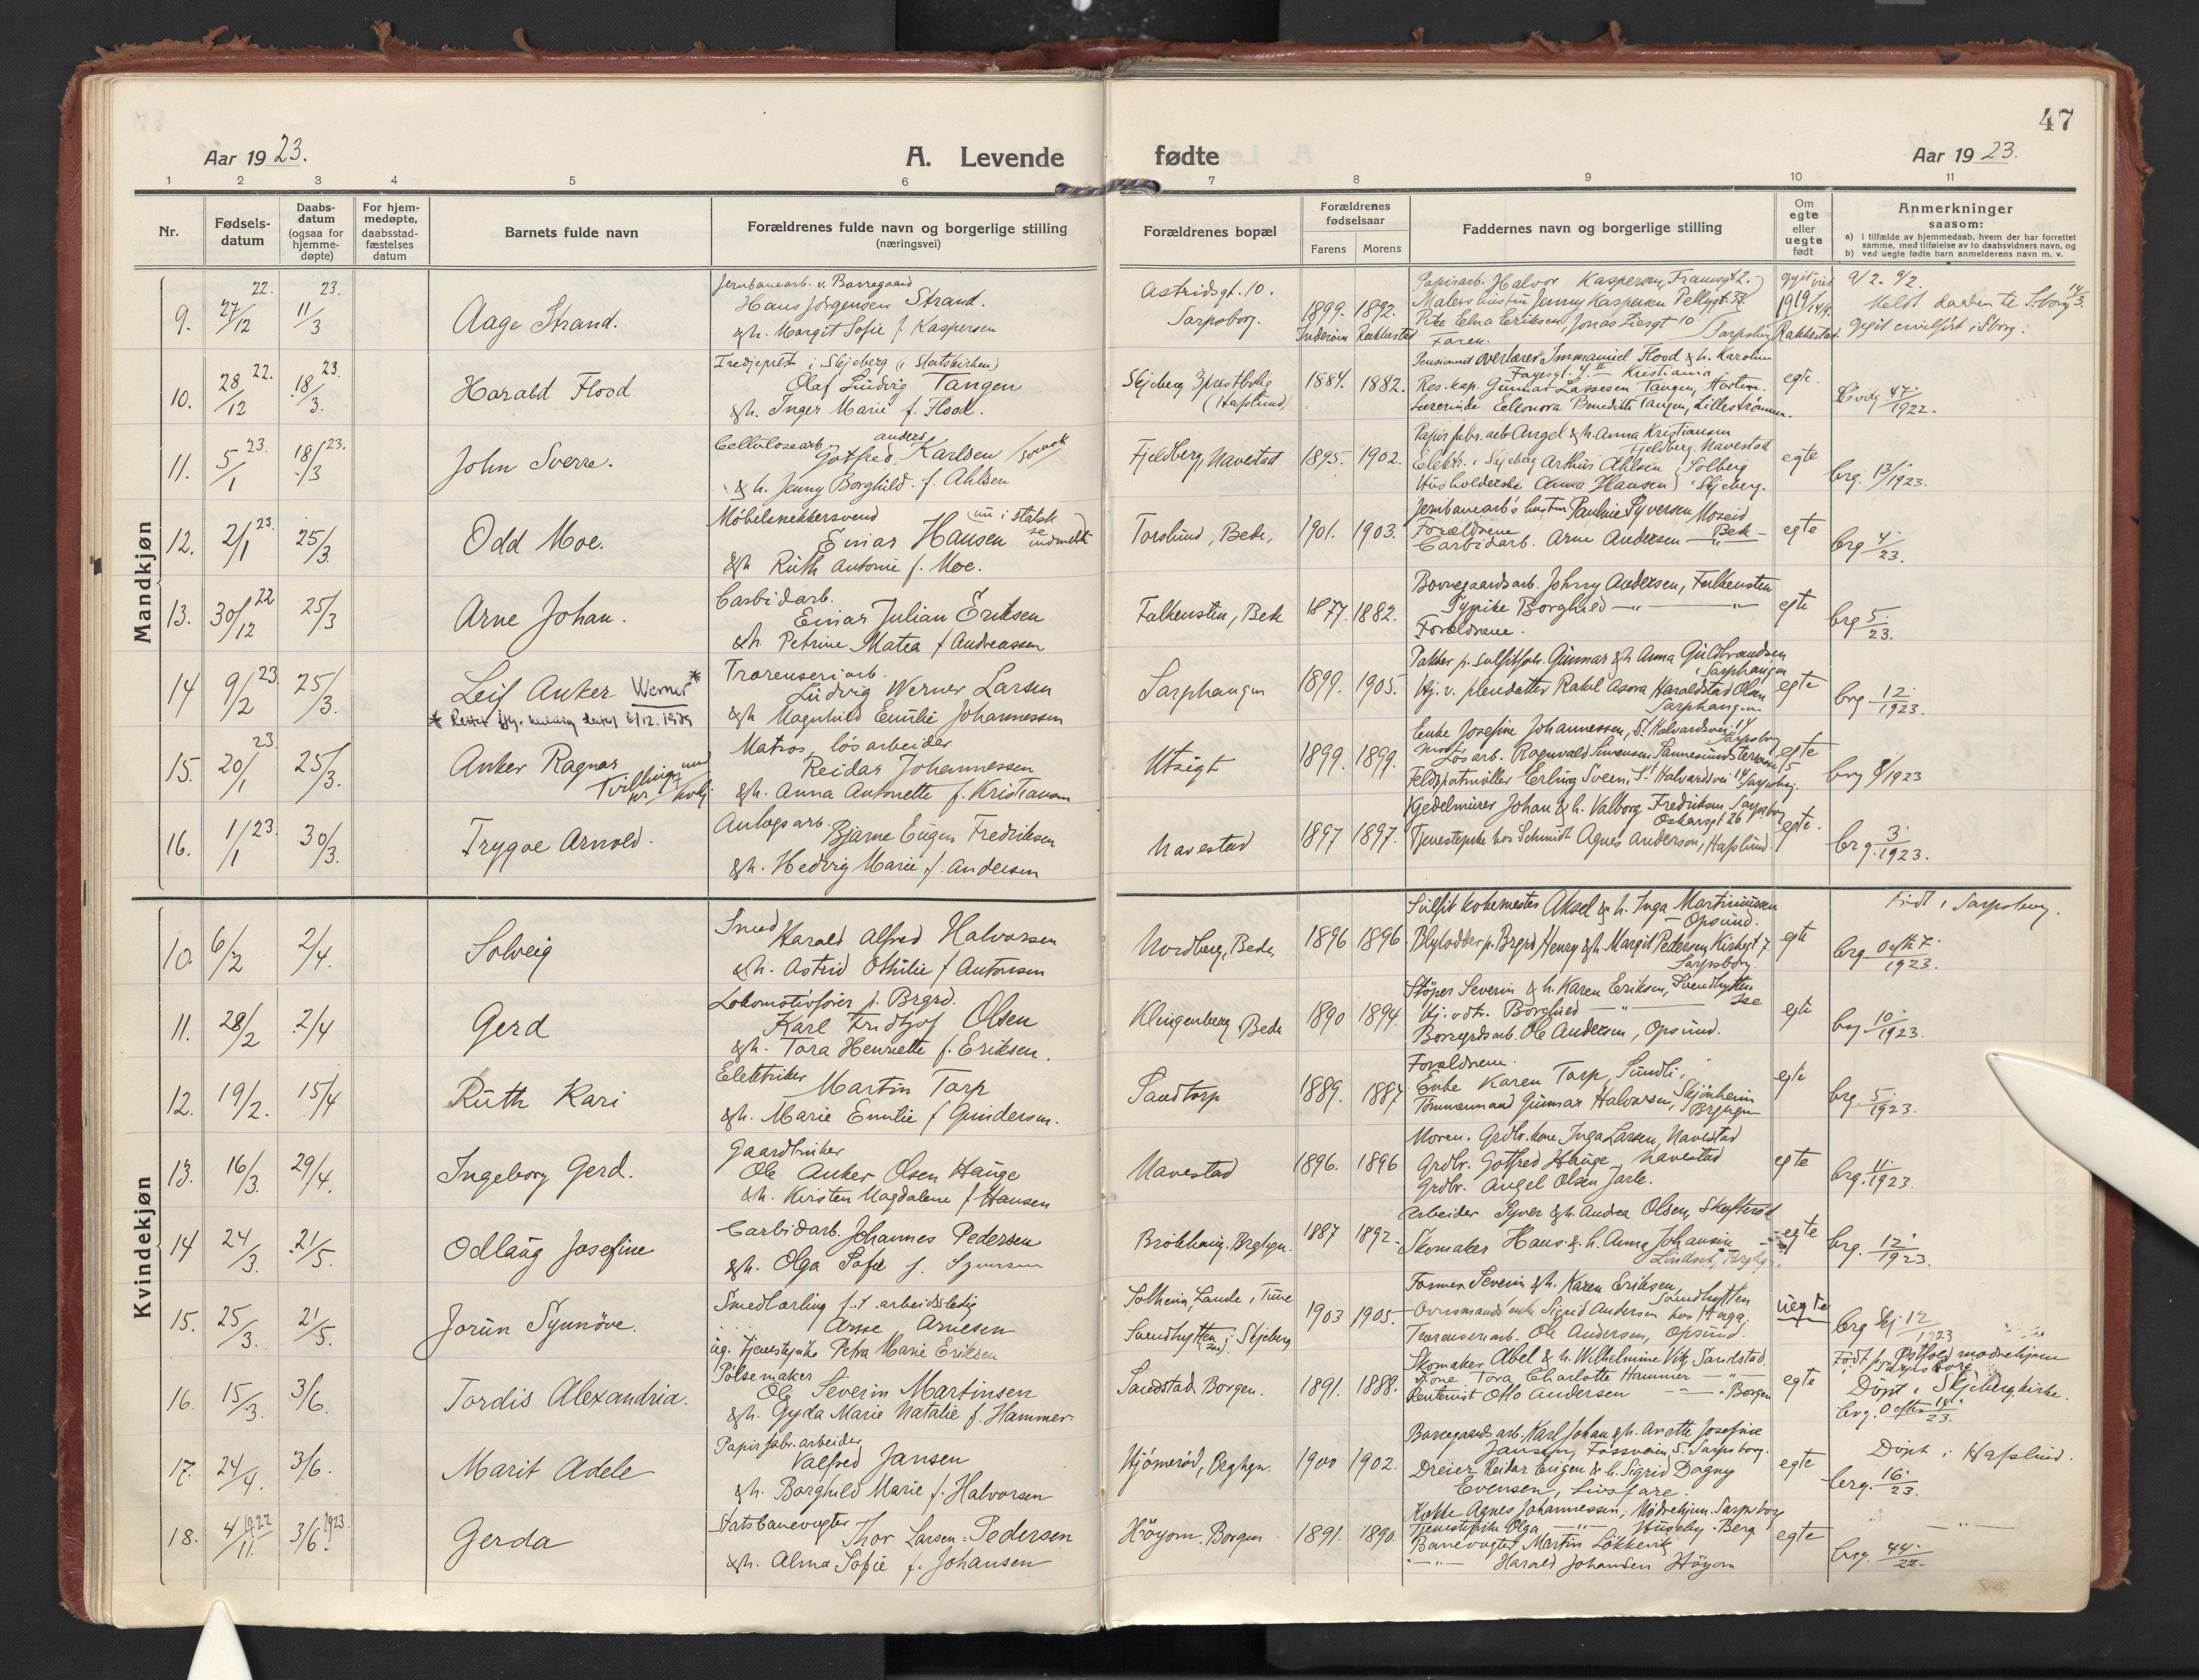 47
Aar 1923.
A. Levende
fødte
Aar 1923.
1 2 3 4 5 6 7 8 9 10 11
Nr.
Fødsels-
datum
Daabs-
datum
(ogsaa for
hjemme-
døpte)
For hjem-
medøpte,
daabsstad-
fæstelses
datum
Barnets fulde navn
Forældrenes fulde navn og borgerlige stilling
(næringsvei)
Forældrenes bopæl
Forældrenes
fødselsaar
Farens Morens
Faddernes navn og borgerlige stilling
Om
egte
eller
uegte
født
Anmerkninger
saasom:
a) i tilfælde av hjemmedaab, hvem der har forrettet
samme, med tilføielse av to daabsvidners navn, og
b) ved uegte fødte barn anmelderens navn m. v.
Mandkjøn
9. 27/12 22. 11/3 23. Aage Strand.
Jernbanearb. v. Borregaard
Hans Jørgensen Strand.
& h. Margit Sofie f. Kaspersen
Astridsgt. 10.
Sarpsborg.
1899. 1892.
Papirarb. Halvor Kaspersen,
Malers hustru Jenny Kaspersen
Pike Edna Eriksen, Jonas Liesgt 10 Sarpsborg
Faren.
10. 28/12 22. 18/3 23. Harald Flood
i Skjeberg (i Statskirken)
Olaf Ludvig Tangen
& h. Inger Marie f. Flood.
Skjeberg 3 prestbolig
(Hafslund)
1884. 1882.
Pensioneret overlærer Immanuel Flood & h. Karoline
Kristiania
Res. kap. Gunnar Lassesen Tangen, Horten.
Lærerinde Eleonora Benedikte Tangen, Lillestrømmen.
egte.
47/1922.
11. 5/1 23. 18/3 23. John Sverre.
Cellulosearb.
Gotfred Karlsen
& h. Jenny Borghild f. Ahlsen
Fjeldberg, Navestad
1895. 1902.
Papirfabr. arb Angel & h. Anna Kristiansen
Fjeldberg, Navestad
Elektr. i Skjeberg Arthur Ahlsen Solberg
Husholderske Anna Hansen i Skjeberg.
egte
brg. 13/1923.
12. 2/1 23. 25/3. Odd Moe.
Møbelsnekkersvend
Einar Hansen
& h Ruth Antonie f. Moe.
Torslund, Bede,
1901. 1903.
Jernbanearb's hustru Pauline Syversen Moseid
Forældrene
Carbidarb. Arne Andersen
egte
brg 4/23.
13. 30/12 22 25/3 Arne Johan.
Carbidarb.
Einar Julian Eriksen
& h. Petrine Matea f Andreassen
Falkensten, Bede
1877. 1882.
Borregaardsarb. Johnny Andersen, Falkensten
Sypike Borghild — " — "
Forældrene.
egte
brg 5/23.
14 9/2 23 25/3. Leif Anker Werner *
Ludvig Werner Larsen
& h Magnhild Emilie Johannessen
Sarphaugen
1899. 1905.
Pakker p. sulfitfabr. Gunnar & h Anna Guldbrandsen
Sarphaugen
egte
brg 12/1923.
15. 20/1 23. 25/3. Anker Ragnar
Matros, løsarbeider
Reidar Johannessen
& h. Anna Antonette f. Kristiansen
Utsigt
1899. 1899.
Enke Josefine Johannessen, St Halvardsvei 14
Sarpsborg
Feldspatmøller Erling Sveen, St Halvardsvei 14 Sarpsborg.
egte
brg 8/1923
16. 1/1 23. 30/3. Trygve Arnold.
Anlægsarb.
Bjarne Eugen Fredriksen
& h. Hedvig Marie f. Andersen
Navestad
1897 1897.
Kjedelmurer Johan & h. Valborg Fredriksen Sarpsborg
Oskarsgt 26
Tjenestepike hos Schmidt Agnes Anderson, Hafslund.
egte.
brg. 3/1923.
Kvindekjøn
10. 6/2 2/4. Solveig
Smed
Harald Alfred Halvorsen
& h. Astrid Othilie f Antonsen
Nordberg, Bede,
1896 1896
Sulfitkokemester Aksel & h. Inga Martiniussen
— Opsund.
Blylodder p. Brgrd Henry & h. Margit Pedersen, Kirkegt 7.
Sarpsborg.
egte
Født i Sarpsborg.
brg 0 eft. 7/1923.
11. 28/2 2/4 Gerd
Lokomotivfører p. Brgrd.
Karl Fridtjof Olsen
& h. Tora Henriette f. Eriksen.
Klingenberg, Bede
1890 1894.
Støper Severin & h. Karen Eriksen, Svendhytten
Borregrdsarb. Ole Andersen, Opsund.
egte
brg. 10/1923.
12. 19/2. 15/4 Ruth Kari
Elektriker
Martin Tarp
& h. Marie Emilie f Gundersen.
Sandtorp
1889. 1887
Forældrene.
Enke Karen Tarp, Sundli,
Tømmermand Gunnar Halvorsen, Skjønheim
egte
brg. 5/1923.
13. 16/3. 29/4. Ingeborg Gerd.
Gaardbruker
Ole Anker Olsen Hauge
& h. Kirsten Magdalene f Hansen
Navestad
1896. 1896
Moren. Grdbr. kone Inga Larsen, Navestad
Grdbr. Gotfred Hauge, Navestad
Grdbr. Angel Olsen Jarle.
egte
brg. 11/1923.
14 24/3. 21/5. Odlaug Josefine
Carbidarb. Johannes Pedersen
& h. Olga Sofie f. Syversen
1887 1892
Arbeider Syver & h. Andrea Olsen, Skofterød
Skomaker Hans & h. Anna Johansen
egte
brg. 12/1923.
15. 25/3. 21/5. Jorun Synnøve.
Smedlærling f. t. arbeidsledig
Arne Arnesen
ug. tjenestepike Petra Marie Eriksen
Solheim, Lande i Tune
Svendhytten i Skjeberg
1903 1905.
Former Severin & h. Karen Eriksen,
Svendhytten
Ole Andersen, Opsund.
uegte
brg Skj. 12/1923
16. 15/3. 3/6. Tordis Alexandria.
Pølsemaker
Ole Severin Martinsen
& h. Gyda Marie Natalie f. Hammer.
Sandstad Borgen.
1891. 1888.
Skomaker Abel & h. Wilhelmine Vik, Sandstad.
Kone Tora Charlotte Hammer — " —
Rentenist Otto Andersen — " — Borgen
egte
Født p. Østfold mødrehjem
i Sarpsborg
Døpt i Skjeberg kirke.
17. 24/4. 3/6. Marit Adele
Papirfabr. arbeider
Valfred Jansen
& h. Borghild Marie f. Halvorsen
1900 1902.
Borregaardsarb. Karl Johan & h. Anette Josefine
Jansen, Fossveien 5. Sarpsborg.
Dreier Reidar Eugen & h. Sigrid Dagny
Evensen,
egte
Døpt i Hafslund.
brg. 16/23.
18. 4/11. 1922 3/6. 1923. Gerda
Statsbanevogter
Thor Larsen Pedersen
& h. Alma Sofie f. Johansen
Høyom, Borgen
1891. 1890
Kokke Agnes Johannessen, Mødrehjem. Sarpsborg
Tjenestepike Olga — " — Huseby. Berg
Banevogter Martin Løkkevik
— " — Harald Johansen Høyom
egte
— " —
brg. 44/22.